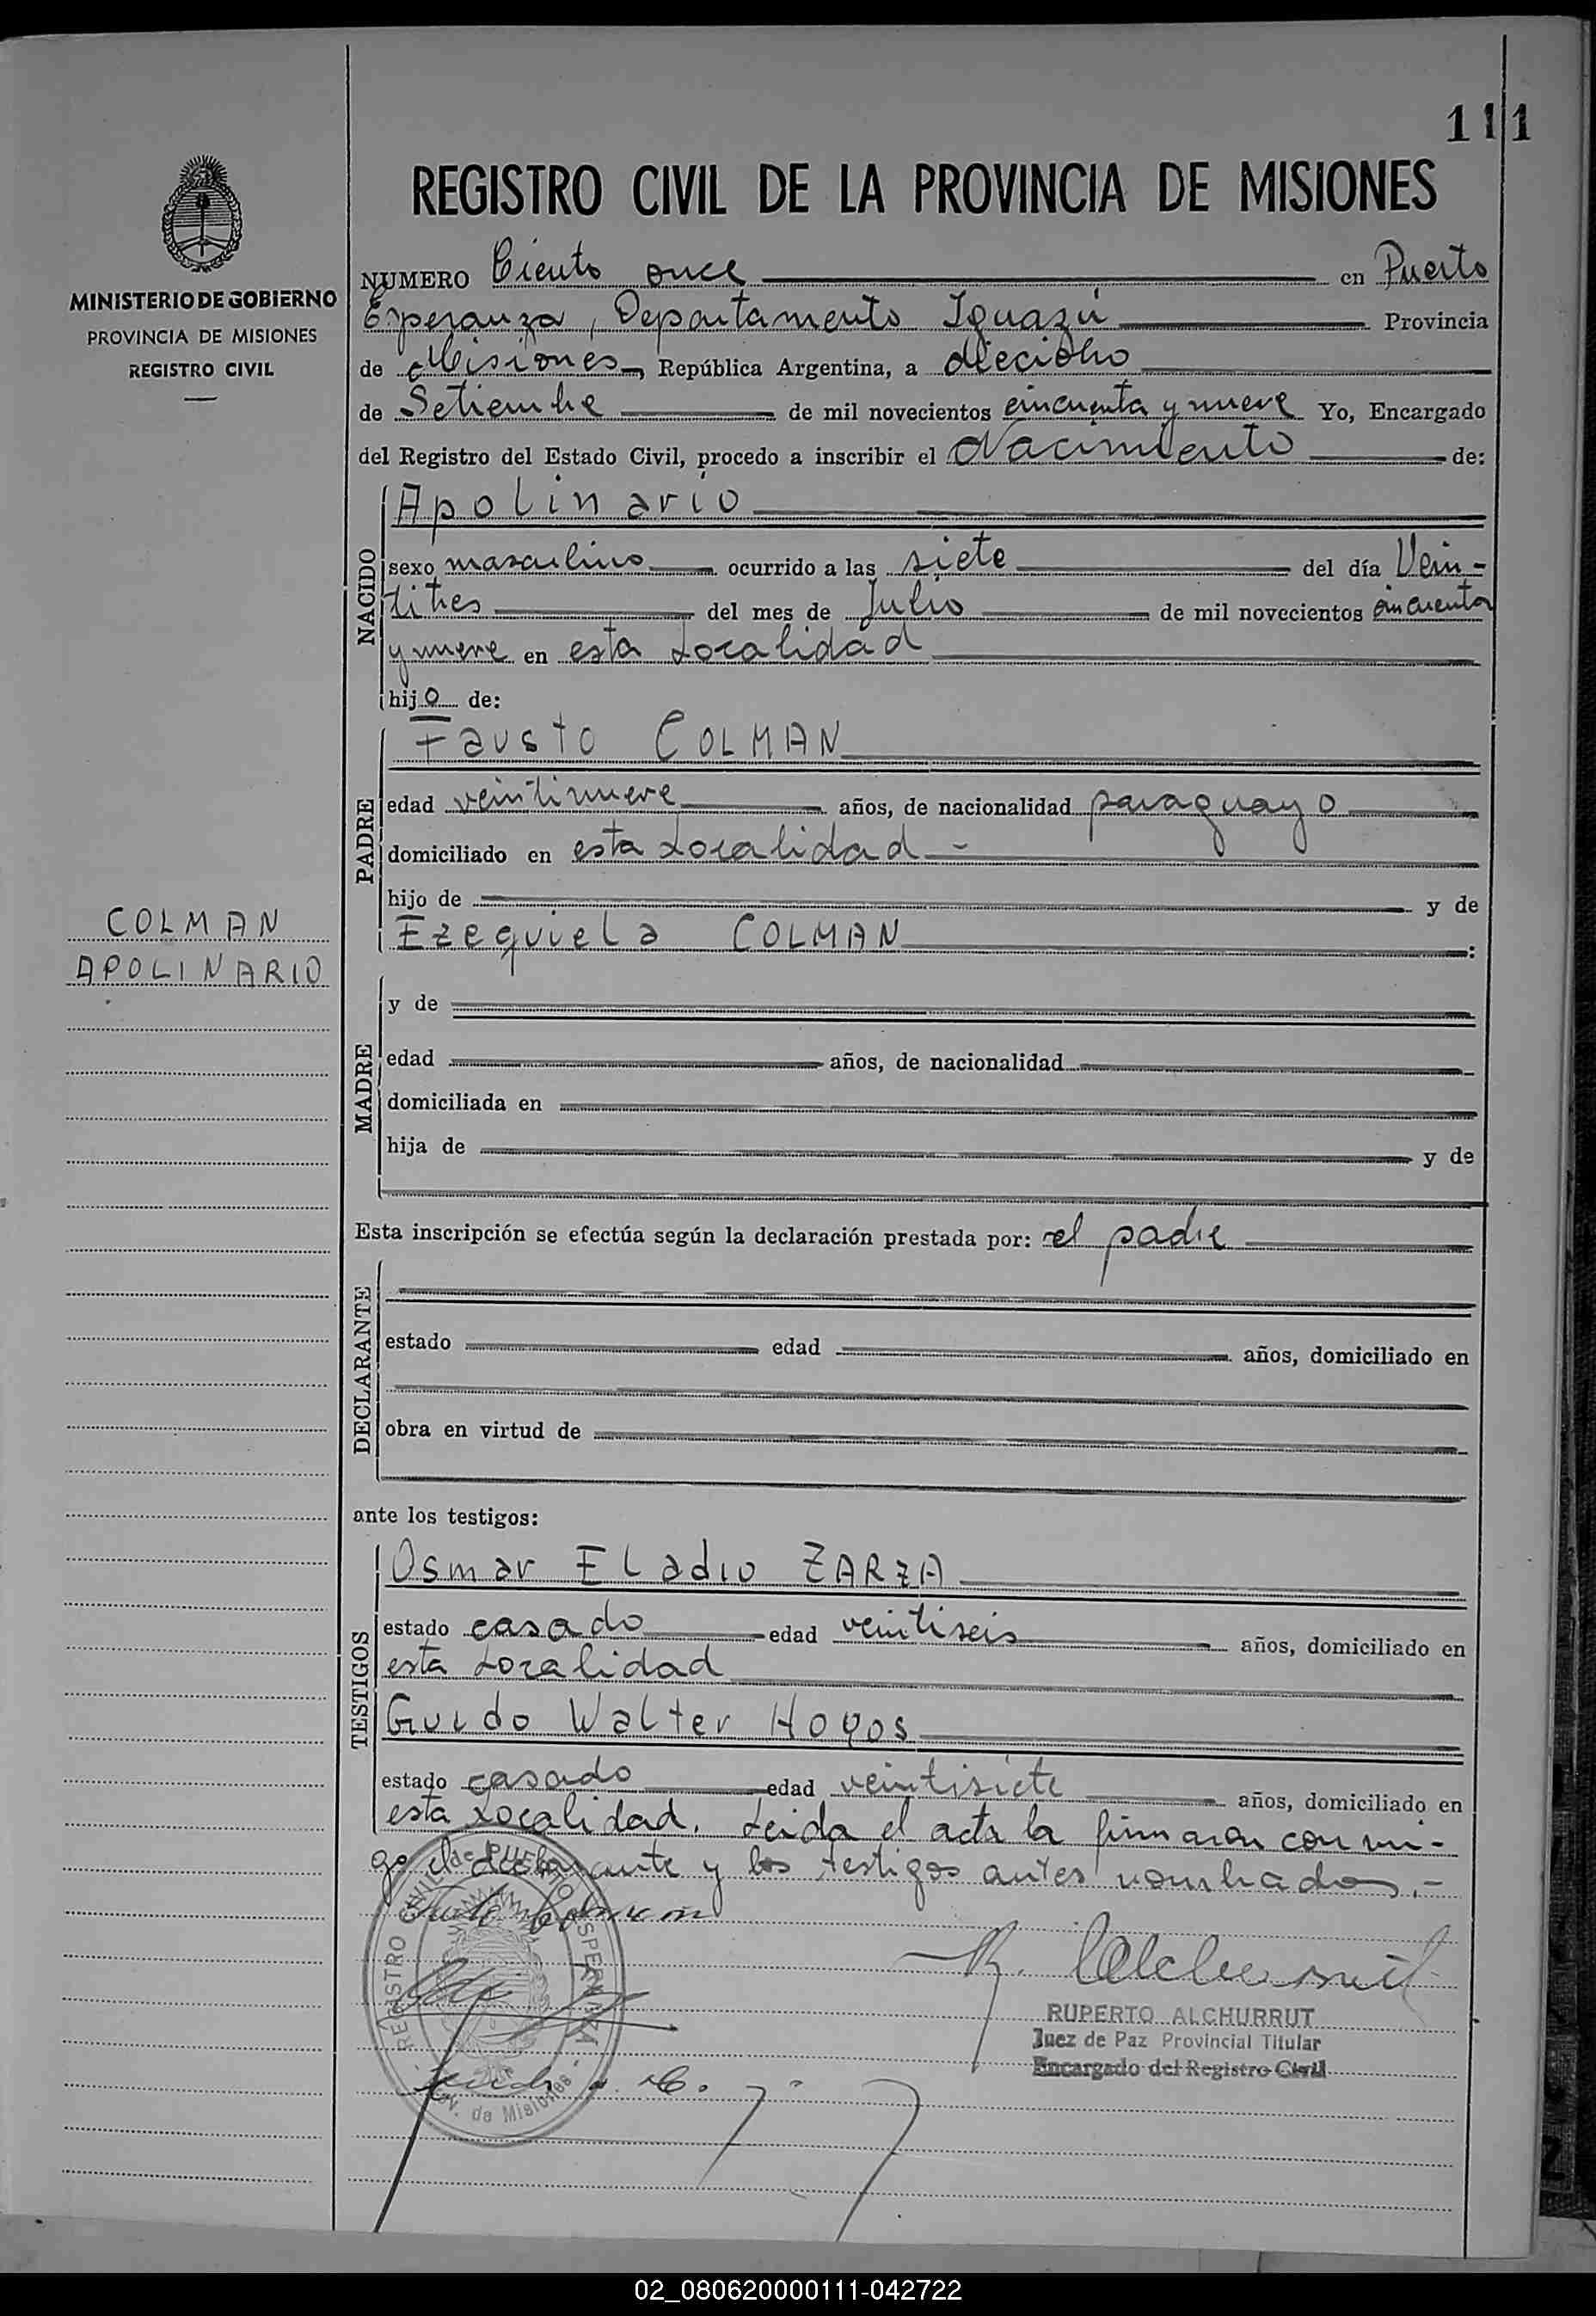 111
REGISTRO CIVIL DE LA PROVINCIA DE MISIONES
MINISTERIO DE GOBIERNO
PROVINCIA DE MISIONES
REGISTRO CIVIL
NUMERO Ciento once en Puerto
Esperanza, Departamento Iguazú Provincia
de Misiones, República Argentina, a dieciocho
de Setiembre de mil novecientos cincuenta y nueve Yo, Encargado
del Registro del Estado Civil, procedo a inscribir el Nacimiento de:
NACIDO
Apolinario
sexo masculino ocurrido a las siete del día Vein-
titres del mes de Julio de mil novecientos cincuenta
y nueve en esta Localidad
hijo de:
PADRE
Fausto COLMAN
edad veintinueve años, de nacionalidad paraguayo
domiciliado en esta Localidad -
hijo de y de
Ezequiela COLMAN :
COLMAN
APOLINARIO
MADRE
y de
edad años, de nacionalidad
domiciliada en
hija de y de
Esta inscripción se efectúa según la declaración prestada por: el padre
DECLARANTE
estado edad años, domiciliado en
obra en virtud de
ante los testigos:
TESTIGOS
Osmar Eladio ZARZA
estado casado edad veintiseis años, domiciliado en
esta Localidad
Guido Walter Hoyos
estado casado edad veintisiete años, domiciliado en
esta Localidad. Leida el acta la firmaron conmi-
go el declarante y los testigos antes nombrados.-
REGISTRO CIVIL de PUERTO ESPERANZA
Prov. de Misiones
RUPERTO ALCHURRUT
Juez de Paz Provincial Titular
Encargado del Registro Civil
02_080620000111-042722